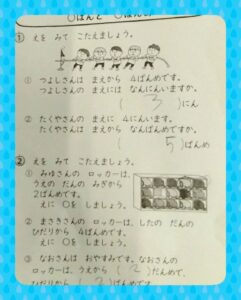 ① えを みて こたえましょう。
① つよしさんは まえから 4ばんめです。
つよしさんの まえには なんにんいますか。
( 3 )にん
② たくやさんの まえに 4にんいます。
たくやさんは まえから なんばんめですか。
( 5 )ばんめ
② えを みて こたえましょう。
① みゆさんの ロッカーは、
うえの だんの みぎから
2ばんめです。
えに ○を しましょう。
② まさきさんの ロッカーは、したの だんの
ひだりから 4ばんめです。
えに ○を しましょう。
③ なおさんは おやすみです。なおさんの
ロッカーは、うえから ( 2 )だんめで、
ひだりから ( 2 )ばんめです。